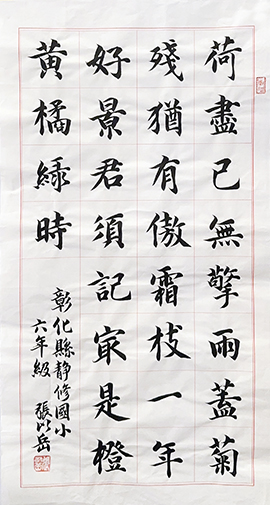 荷盡已無擎雨蓋菊
殘猶有傲霜枝一年
好景君須記冣是橙
黃橘綠時
彰化縣靜修國小
六年級 張以岳